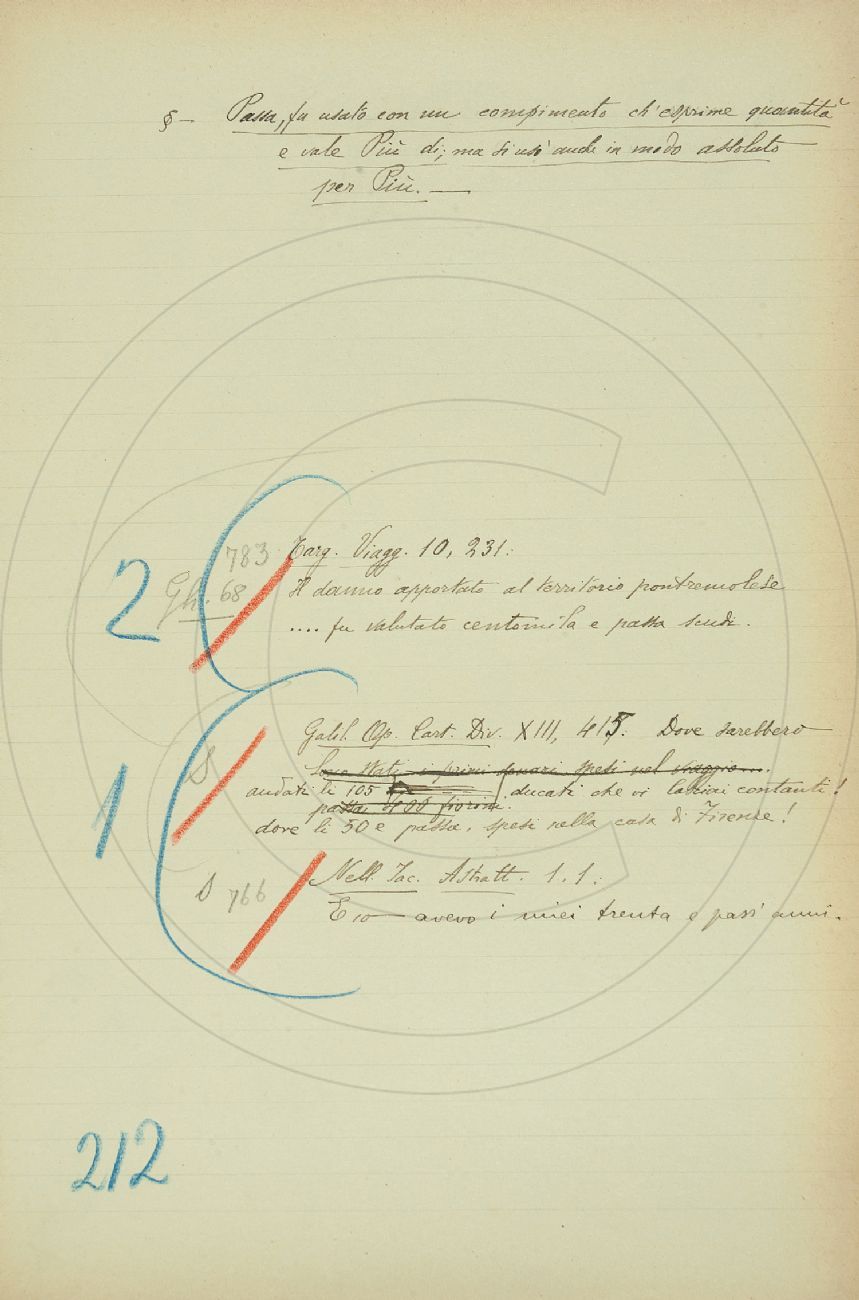 § — Passa, fu usato con un compimento ch' esprime quantità
e vale Più di; ma si usò anche in modo assoluto
per Più. —
783 Targ. Viagg. 10, 231:
2 Gh. 68 Il danno apportato al territorio pontremolese
.... fu valutato centomila e passa scudi.
Galil. Op. Cart. Div. XIII, 415. Dove sarebbero
S Sono stati i primi denari spesi nel viaggio....
1 andati li 105 ducati che vi lasciai contanti!
passa di 00 fiorini.
dove li 50 e passa, spesi nella casa di Firenze!
S 766 Nell. Jac. Astratt. 1.1:
E io avevo i miei trenta e passi anni.
212